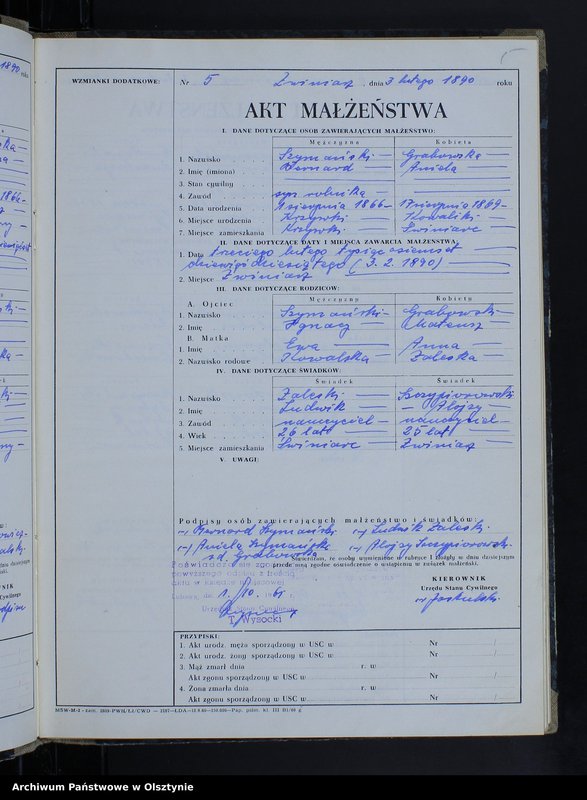 WZMIANKI DODATKOWE:
Nr 5 Zwiniarz, dnia 3 lutego 1890 roku
AKT MAŁŻEŃSTWA
I. DANE DOTYCZĄCE OSÓB ZAWIERAJĄCYCH MAŁŻEŃSTWO:
Mężczyzna Kobieta
1. Nazwisko Szymański Grabowska
2. Imię (imiona) Bernard Aniela
3. Stan cywilny
4. Zawód syn rolnika
5. Data urodzenia sierpnia 1866 17 sierpnia 1869
6. Miejsce urodzenia Kowaliki
7. Miejsce zamieszkania Świniarc
II. DANE DOTYCZĄCE DATY I MIEJSCA ZAWARCIA MAŁŻEŃSTWA:
1. Data trzeciego lutego tysiąc osiemset
dziewięćdziesiątego (3. 2. 1890)
2. Miejsce Zwiniarz
III. DANE DOTYCZĄCE RODZICÓW:
Mężczyzny Kobiety
A. Ojciec
1. Nazwisko Szymański Grabowski
2. Imię Ignacy Mateusz
B. Matka
1. Imię Ewa Anna
2. Nazwisko rodowe Kowalska Zaleska
IV. DANE DOTYCZĄCE ŚWIADKÓW:
Świadek Świadek
1. Nazwisko Zaleski Szczypiorowski
2. Imię Ludwik Alojzy
3. Zawód nauczyciel nauczyciel
4. Wiek 26 lat 25 lat
5. Miejsce zamieszkania Świniarc Zwiniarz
V. UWAGI:
Podpisy osób zawierających małżeństwo i świadków:
Bernard Szymański Ludwik Zaleski
Aniela Szymański Alojzy Szczypiorowski
zd. Grabowska
Stwierdzam, że osoby wymienione w rubryce I złożyły w dniu dzisiejszym
przede mną zgodne oświadczenie o wstąpieniu w związek małżeński.
Poświadczam zgodność
powyższego odpisu z treścią
aktu w księdze
KIEROWNIK
Urzędu Stanu Cywilnego
Urzędu Stanu Cywilnego
T. Wysocki
PRZYPISKI:
1. Akt urodz. męża sporządzony w USC w Nr /
2. Akt urodz. żony sporządzony w USC w Nr /
3. Mąż zmarł dnia r. w
Akt zgonu sporządzony w USC w Nr /
4. Żona zmarła dnia r. w
Akt zgonu sporządzony w USC w Nr /
Archiwum Państwowe w Olsztynie